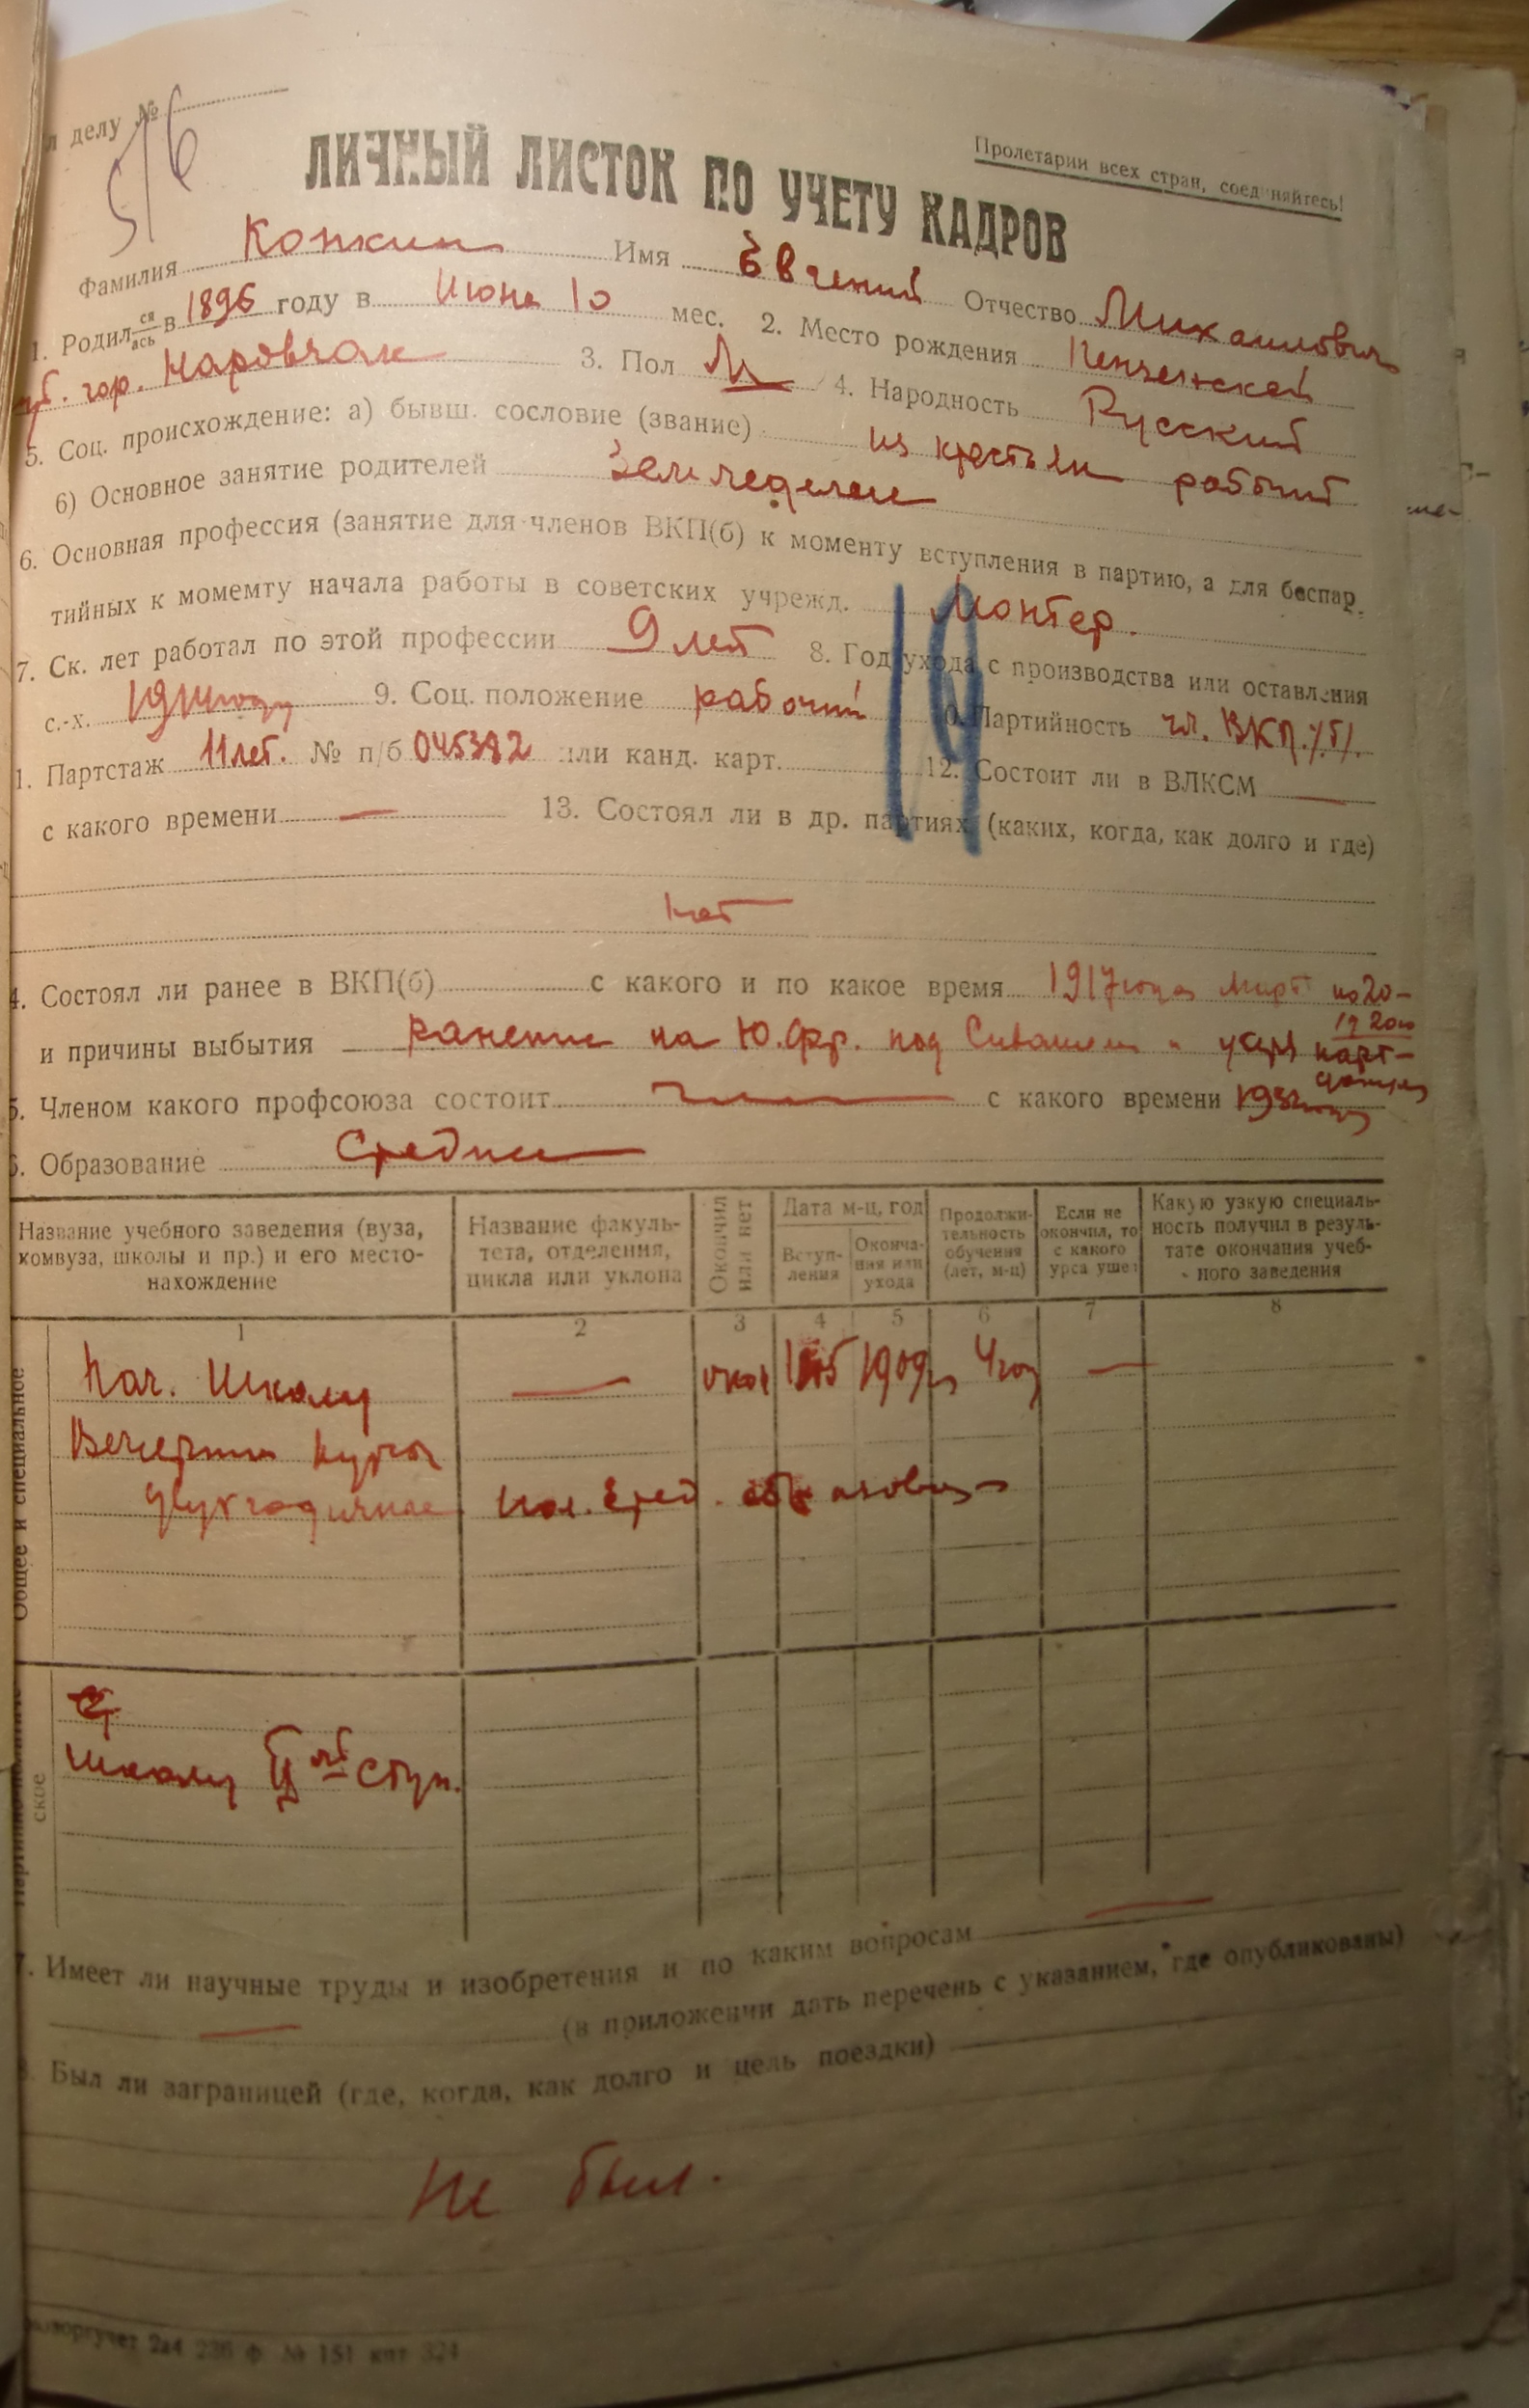 л делу № 516
Пролетарии всех стран, соединяйтесь!
ЛИЧНЫЙ ЛИСТОК ПО УЧЕТУ КАДРОВ
Фамилия Конкин Имя Евгений Отчество Михаилович
1. Родил ся ась в 1896 году в Июне 10 мес. 2. Место рождения Пензенской
губ. гор. Наровчат 3. Пол М 4. Народность Русский
5. Соц. происхождение: а) бывш. сословие (звание) из крестьян рабочий
б) Основное занятие родителей Земледелие
6. Основная профессия (занятие для членов ВКП(б) к моменту вступления в партию, а для беспар.
тийных к момемту начала работы в советских учрежд. Монтер.
7. Ск. лет работал по этой профессии 9 лет 8. Год ухода с производства или оставления
с.-х. 1914 году 9. Соц. положение рабочий 10. Партийность чл. ВКП/б/.
1. Партстаж 11 лет. № п/б 045392 или канд. карт. 12. Состоит ли в ВЛКСМ —
с какого времени — 13. Состоял ли в др. партиях (каких, когда, как долго и где)
нет
19
4. Состоял ли ранее в ВКП(б) с какого и по какое время 1917 года Март по 20-
1920
и причины выбытия ранение на Ю.Фр. под Сивашем и парт-
5. Членом какого профсоюза состоит с какого времени
6. Образование Среднее
Название учебного заведения (вуза, комвуза, школы и пр.) и его место-нахождение
Название факуль-тета, отделения, цикла или уклона
Окончил или нет
Дата м-ц, год
Вступ-ления
Оконча-ния или ухода
Продолжи-тельность обучения (лет, м-ц)
Если не окончил, то с какого курса ушел
Какую узкую специаль-ность получил в резуль-тате окончания учеб-ного заведения
1 2 3 4 5 6 7 8
Общее и специальное
Нач. Школу — окон 1905 1909 4 год —
Вечерние курсы
двухгодичные сред. образован
ское
школу II ой ступ.
7. Имеет ли научные труды и изобретения и по каким вопросам —
— (в приложении дать перечень с указанием, где опубликованы)
Был ли заграницей (где, когда, как долго и цель поездки)
Не был.
№ 151